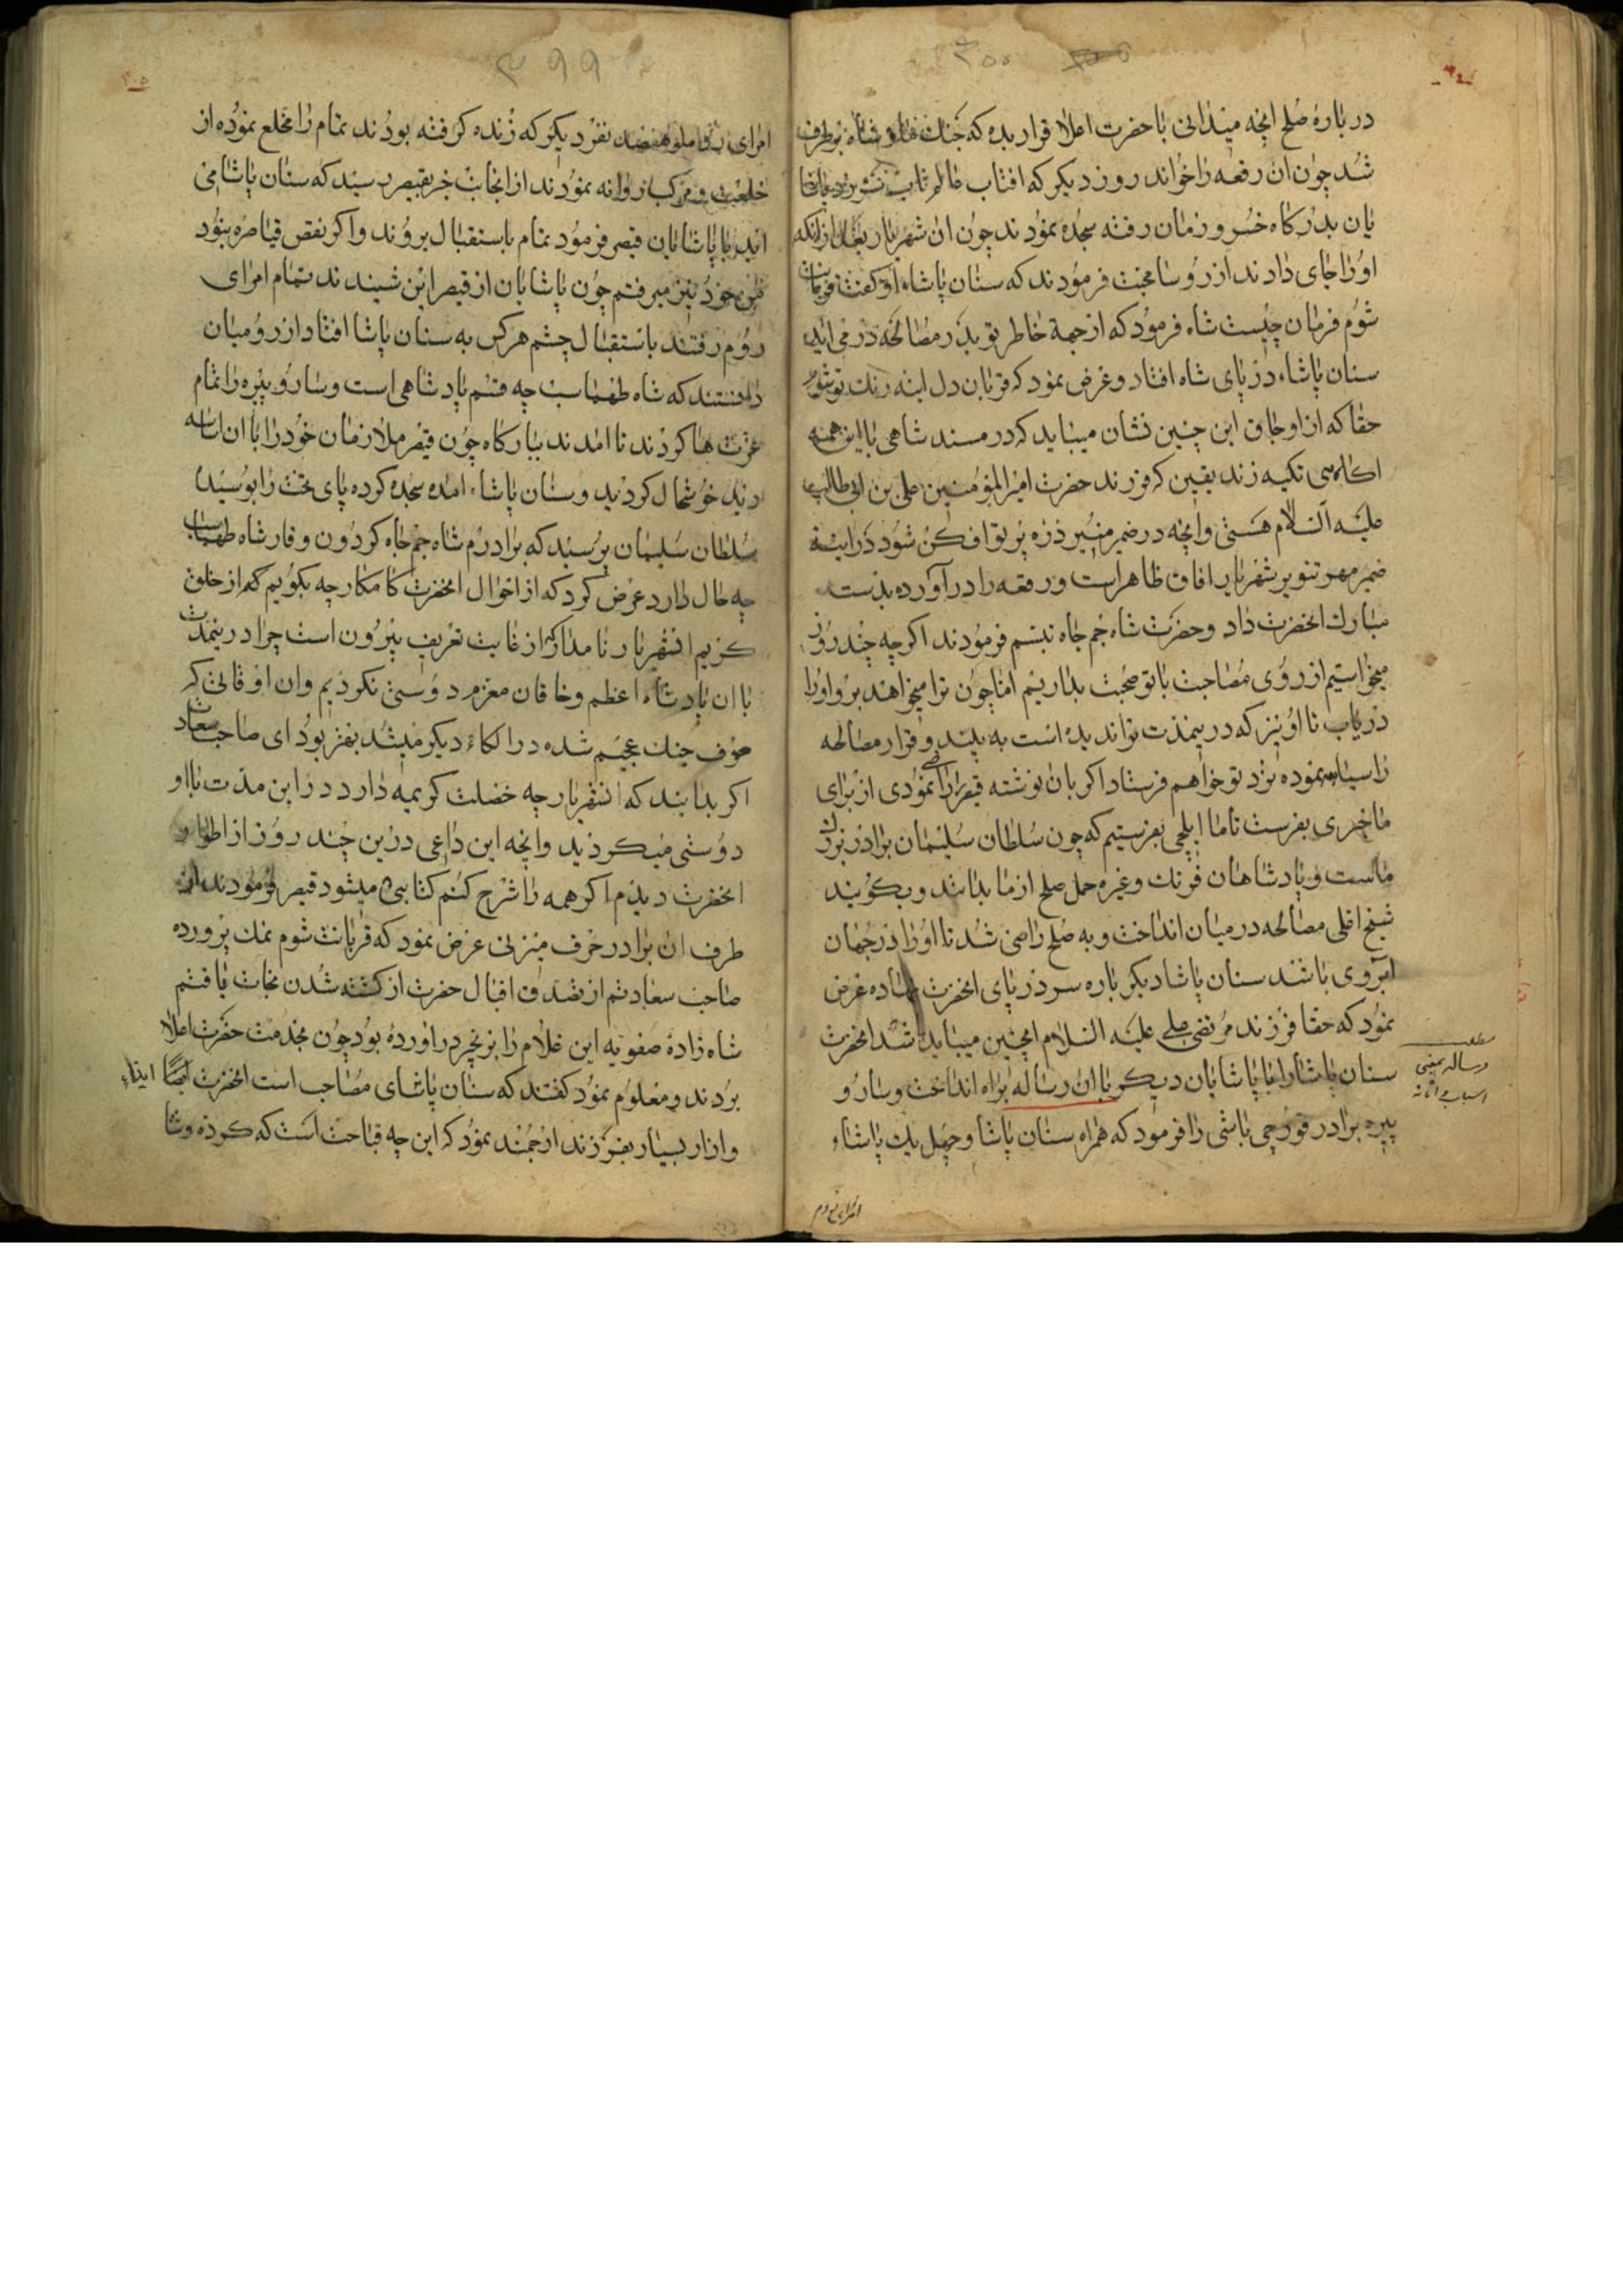 ۳۰۰
در باره صلح انچه میدانی با حضرت اعلا قرار بده که جنک شاه بر طرف
شد چون ان رقعه را خواند روز دیکر که افتاب عالم تاب
یان بدرکاه خسرو زمان رفته سجده نمودند چون ان شهریار بعد از انکه
او را جای دادند از روی محبت فرمودند که سنان پاشا او کفت قربانت
شوم فرمان چیست شاه فرمود که از جهة خاطر تو پدر مصالحه در می اید
سنان پاشا در پای شاه افتاد و عرض نمود که قربان دل اینه رنک تو شوم
حقا که از اوجاق این چنین نشان میباید که در مسند شاهی با این همه
اکاهی تکیه زند یقین که فرزند حضرت امیر المؤمنین علی بن ابی طالب
علیه السلام هستی و انچه در ضمیر منیر ذره پرتو افکن شود در اینه
ضمیر مهر تنویر شهریار افاق ظاهر است و رقعه را در آورده بدست
مبارک انحضرت داد و حضرت شاه جم جاه تبسم فرمودند اکرچه چند روز
میخواستیم از روی مصاحبت با تو صحبت بداریم اما چون ترا میخواهند برو او را
دریاب تا او نیز که درینمدت ترا ندیده است به بیند و قرار مصالحه
را سیاهه نموده نزد تو خواهم فرستاد اکر بان نوشته قیصر را راضی نمودی از برای
ما خبری بفرست تا ما ایلچی بفرستیم که چون سلطان سلیمان برادر بزرک
ماست و پادشاهان فرنک و غیره حمل صلح از ما بدانند و بکویند
شیخ اغلی مصالحه در میان انداخت و به صلح راضی شد تا او را در جهان
ابروی باشد سنان پاشا دیکر باره سر در پای انحضرت نهاده عرض
نمود که حقا فرزند مرتضی علی علیه السلام اینچنین میباید باشد انحضرت
سنان پاشا را با پاشایان دیکر با ان رساله براه انداخت و سارو
پیره برادر قورچی باشی را فرمود که همراه سنان پاشا و چهل یک پاشاء
امرای روم
۲۹۹
امرای نفر دیکر که زنده کرفته بودند تمام را مخلع نموده از
خلعت و مرکب روانه نمودند از انجانب خبر بقیصر رسید که سنان پاشا می
اید با پاشایان قیصر فرمود تمام باستقبال بروند و اکر نقص قیاصره نبود
من خود نیز میرفتم چون پاشایان از قیصر این شنیدند تمام امرای
روم رفتند باستقبال چشم هر کس به سنان پاشا افتاد از رومیان
دانستند که شاه طهماسب چه قسم پادشاهی است و سارو پیره را تمام
عزت ها کردند تا امدند ببارکاه چون قیصر ملازمان خود را با ان اساسه
دید خوشحال کردید و سنان پاشاء امده سجده کرده پای تخت را بوسید
سلطان سلیمان پرسید که برادرم شاه جم جاه کردون وقار شاه طهماسب
چه حال دارد عرض کرد که از احوال انحضرت کامکار چه بکویم که از خلق
کریم انشهریار نامدار که از غایت تعریف بیرون است چرا درینمدت
با ان پادشاه اعظم و خاقان معزم دوستی نکردیم و ان اوقاتی که
صرف جنک عجم شده در الکاء دیکر میشد بهتر بود ای صاحب سعادت
اکر بدانید که انشهریار چه خصلت کریمه دارد در این مدت با او
دوستی میکردید و انچه این داعی درین چند روز از اطوار
انحضرت دیدم اکر همه را شرح کنم کتابی میشود قیصر فرمودند از
طرف ان برادر حرف میزنی عرض نمود که قربانت شوم نمک پرورده
صاحب سعادتم از تصدق اقبال حضرت از کشته شدن نجات یافتم
شاه زاده صفویه این غلام را بزنجیر در اورده بود چون بخدمت حضرت اعلا
بردند و معلوم نمود کفتند که سنان پاشای مصاحب است انحضرت ایضا ایذاء
و ازار بسیار بفرزند ارجمند نمود که این چه قباحت است که کرده و شا